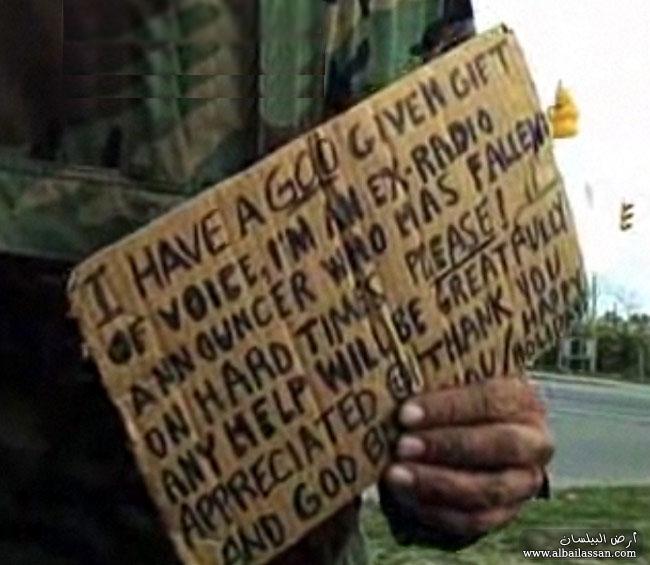 I HAVE A GOD GIVEN GIFT
OF VOICE, I'M AN EX-RADIO
ANNOUNCER WHO HAS FALLEN
ON HARD TIMES PLEASE!
ANY HELP WILL BE GREATFULLY
APPRECIATED THANK YOU
AND GOD YOU/HAPPY
HOLIDAY
أرض البيلسان
www.albailassan.com